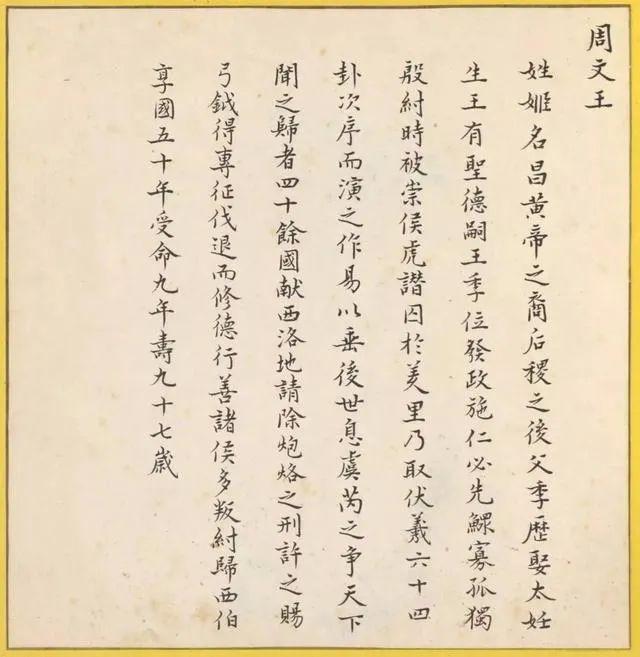 周文王
姓姬名昌黃帝之裔后稷之後父季歷娶太妊
生王有聖德嗣王季位發政施仁必先鰥寡孤獨
殷紂時被崇侯虎譖囚於羑里乃取伏羲六十四
卦次序而演之作易以垂後世息虞芮之爭天下
聞之歸者四十餘國献西洛地請除炮烙之刑許之賜
弓鉞得專征伐退而修德行善諸侯多叛紂歸西伯
享國五十年受命九年壽九十七歲